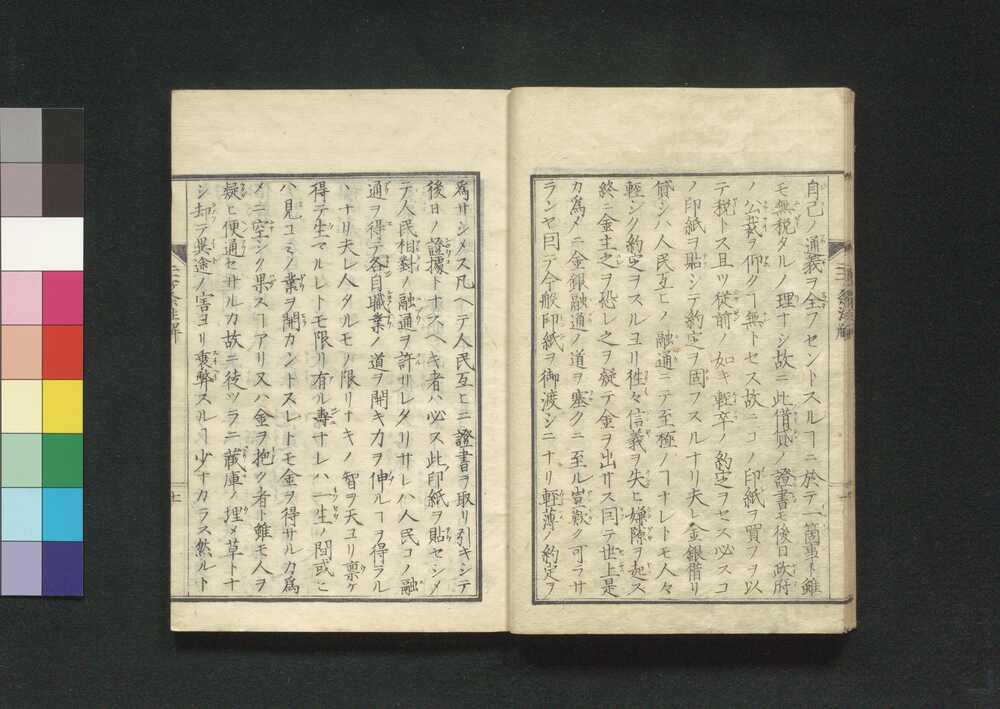 自己ノ通義ヲ全フセントスルヿニ於テ一箇事ト雖
モ無税タルノ理ナシ故ニ此借貸ノ證書モ後日政府
ノ公裁ヲ仰クヿ無トセス故ニコノ印紙ヲ買フヲ以
テ税トス且ツ従前ノ如キ輕卒ノ約定ヲセス必スコ
ノ印紙ヲ貼シテ約定ヲ固フスルナリ夫レ金銀借リ
貸シハ人民互ヒノ融通ニテ至極ノヿナレトモ人々
輕シク約定ヲスルヨリ徃々信義ヲ失ヒ嫌隙ヲ起ス
終ニ金主之ヲ恐レ之ヲ疑テ金ヲ出サス因テ世上是
カ為メニ金銀融通ノ道ヲ塞クニ至ル豈歎ク可ラサ
ランヤ因テ今般印紙ヲ御渡シニナリ輕薄ノ約定ヲ
為サシメス凡ヘテ人民互ヒニ證書ヲ取リ引キシテ
後日ノ證據トナスヘキ者ハ必ス此印紙ヲ貼セシメ
テ人民相對ノ融通ヲ許サレタリサレハ人民コノ融
通ヲ得テ各自職業ノ道ヲ開キ力ヲ伸ルヿヲ得ラル
ヽナリ夫レ人タルモノ限リナキノ智ヲ天ヨリ禀ケ
得テ生マルレトモ限リ有ル壽ナレハ一生ノ間或ヒ
ハ見コミノ業ヲ開カントスレトモ金ヲ得サルカ為
メニ空シク果スヿアリ又ハ金ヲ抱ク者ト雖モ人ヲ
疑ヒ便通セサルカ故ニ徒ツラニ藏庫ノ埋メ草トナ
シ却テ異途ノ害ヨリ衰弊スルヿ少ナカラス然ルト